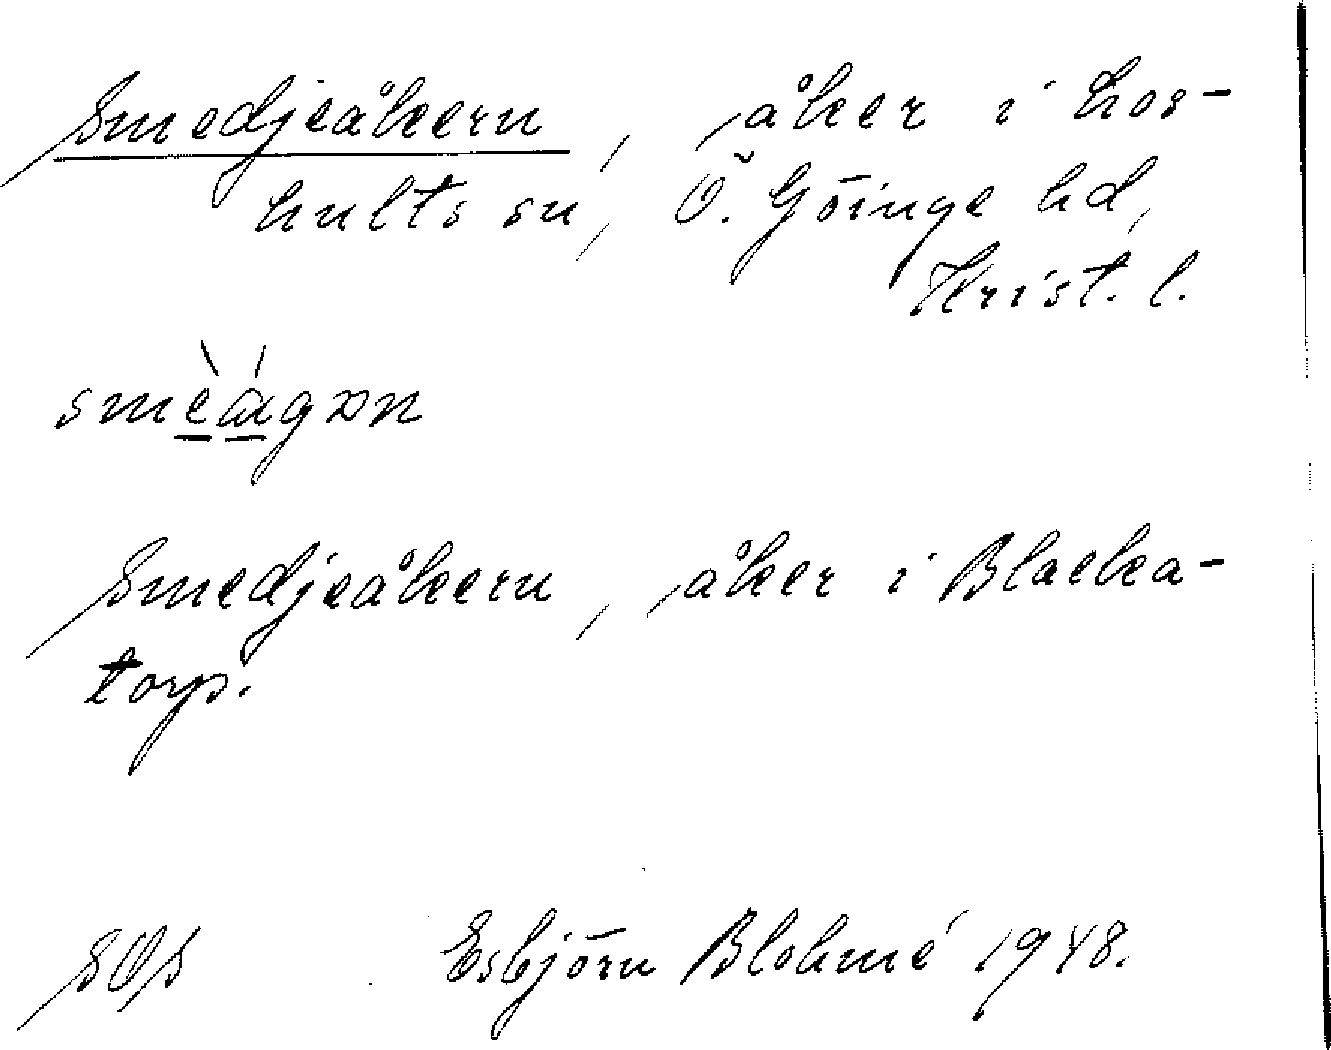 Smedjeåkern, åker i hos-
hults sn, Ö. Göinge hd,
Krist. l.
smèágən
Smedjeåkern, åker i Blacka-
torp.
SOS Esbjörn Blohmé 1948.